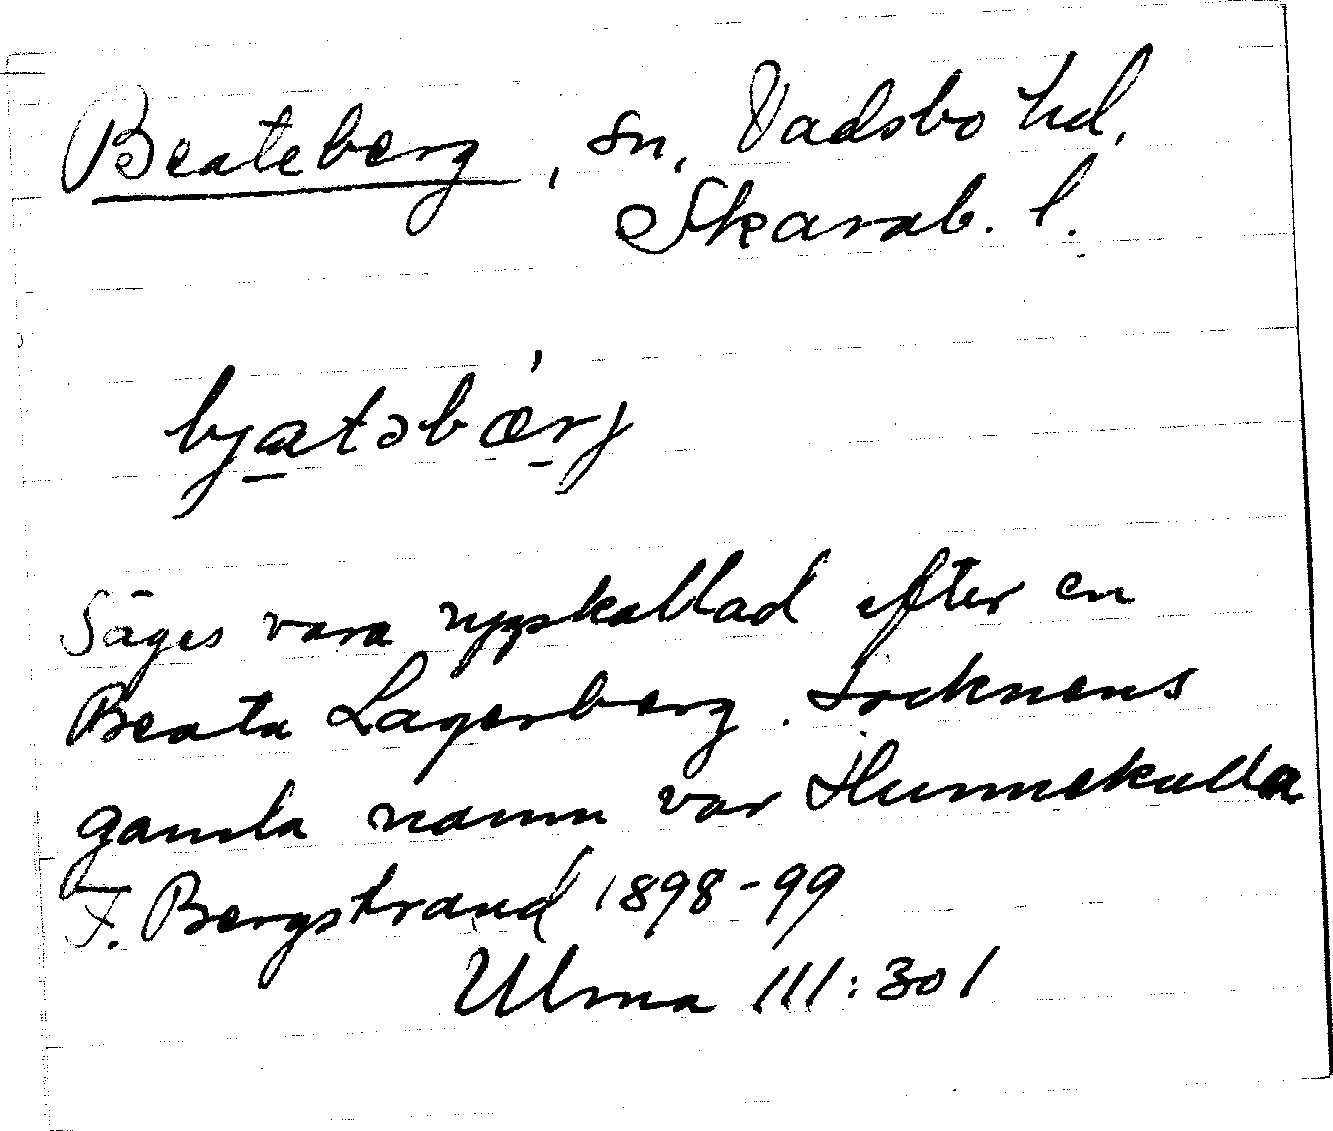 Beateberg, sn, Vadsbo hd,
Skarab. l.
bjatəbæ'rj
Säges vara uppkallad efter en
Beata Lagerberg. Socknens
gamla namn var Hunnekulla
F. Bergstrand 1898-99
Ulma 111:301